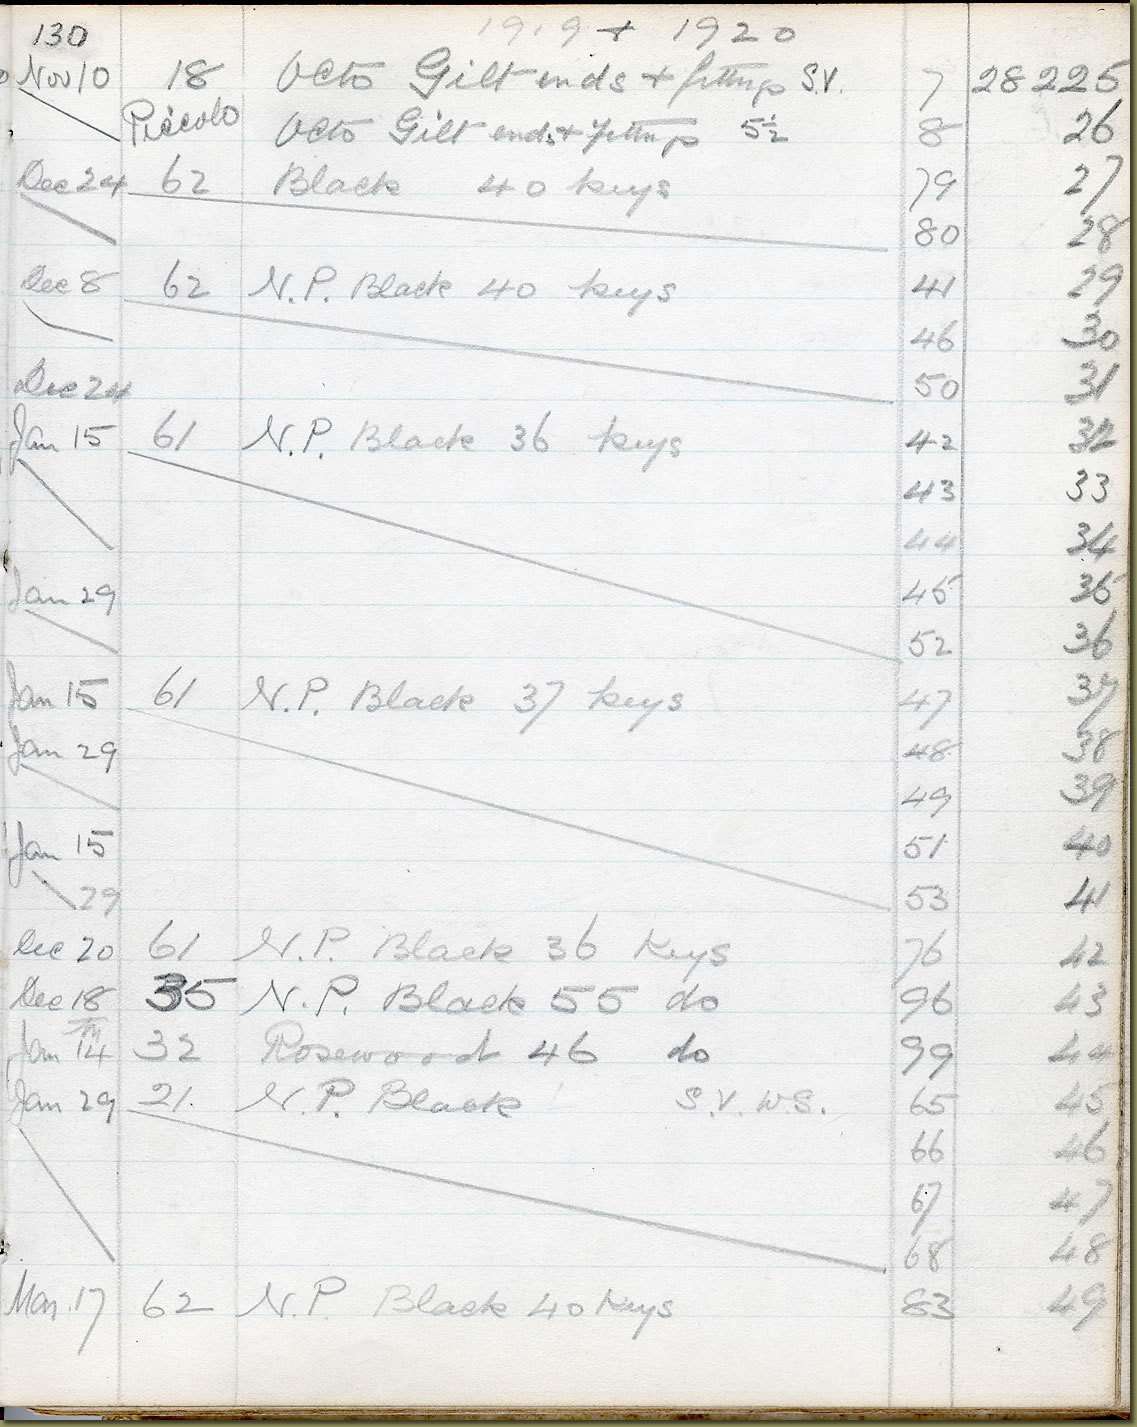 130 1919 + 1920
Nov 10 18 Octo Gilt ends + fittings S.V. 7 28225
Piccolo Octo Gilt ends + fittings 5½ 8 26
Dec 24 62 Black 40 keys 79 27
80 28
Dec 8 62 N.P. Black 40 keys 41 29
46 30
Dec 24 50 31
Jan 15 61 N.P. Black 36 keys 42 32
43 33
44 34
Jan 29 45 35
52 36
Jan 15 61 N.P. Black 37 keys 47 37
Jan 29 48 38
49 39
Jan 15 51 40
29 53 41
Dec 20 61 N.P. Black 36 Keys 76 42
Dec 18 35 N.P. Black 55 do 96 43
Jan 14 32 Rosewood 46 do 99 44
Jan 29 21. N.P. Black S.V. W.S. 65 45
66 46
67 47
68 48
Mar. 17 62 N.P. Black 40 Keys 83 49